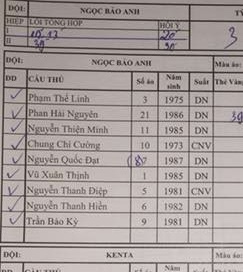 ĐỘI: NGỌC BẢO ANH
HIỆP LỖI TỔNG HỢP HỘI Ý
I 20
II 39 30
3
ĐỘI: NGỌC BẢO ANH Màu áo:
DD CẦU THỦ Số áo Năm sinh Suất Thẻ Vàng
Phạm Thế Linh 3 1975 DN
Phan Hải Nguyên 21 1986 DN
Nguyễn Thiện Minh 11 1985 DN
Chung Chí Cường 10 1973 CNV
Nguyễn Quốc Đạt 1987 DN
Vũ Xuân Thịnh 1 1985 DN
Nguyễn Thanh Điệp 5 1981 CNV
Nguyễn Thanh Hiền 6 1982 DN
Trần Bảo Kỳ 9 1981 DN
ĐỘI: KENTA Màu áo:
Số Năm